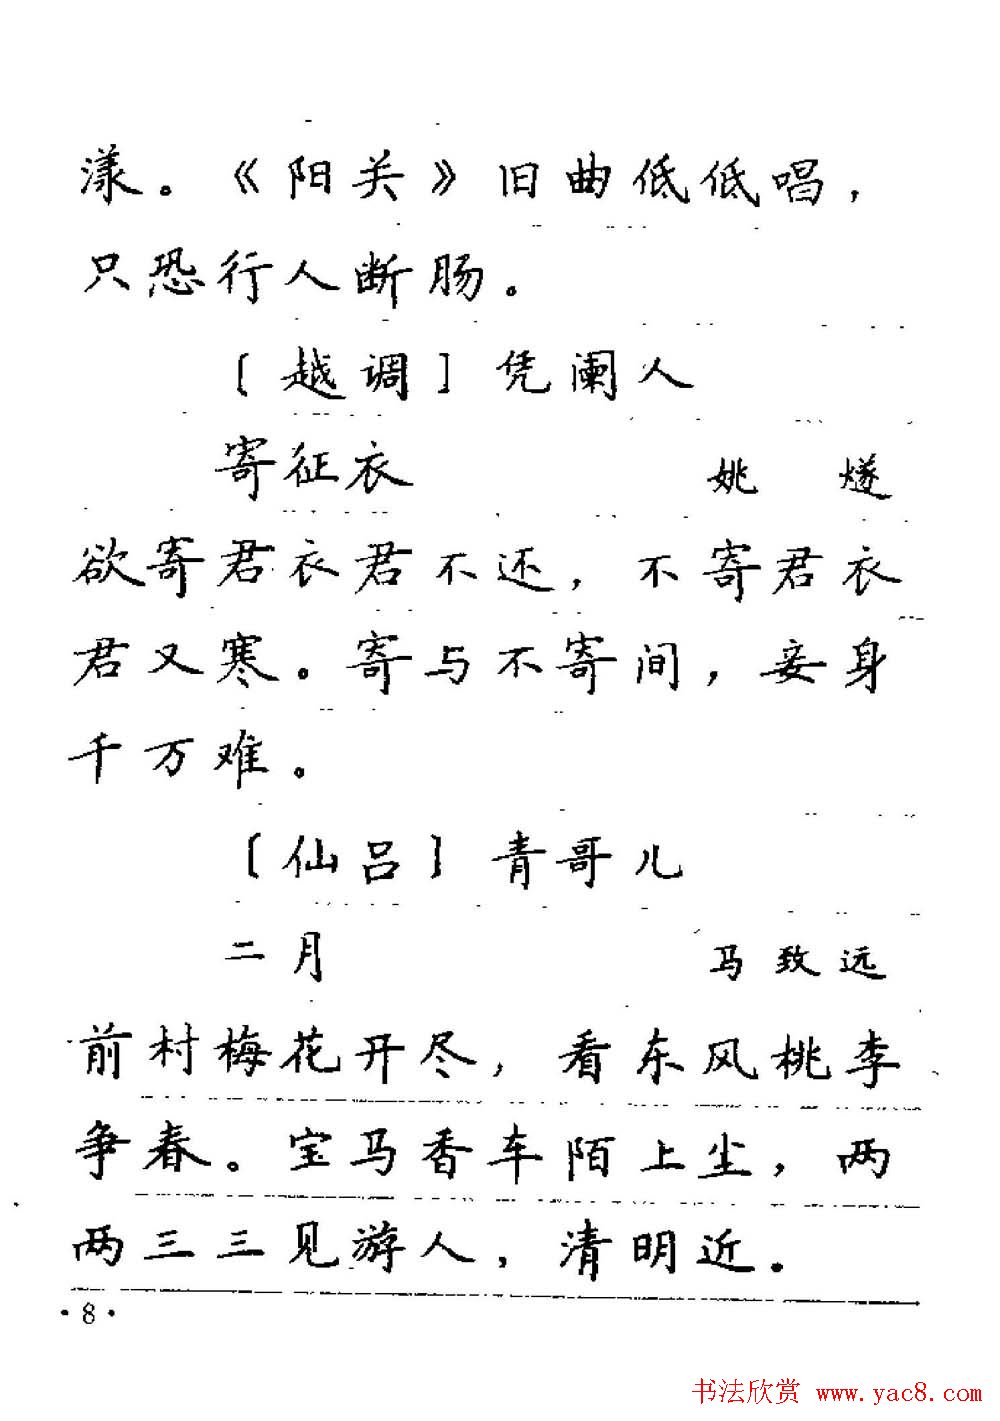 漾。《阳关》旧曲低低唱，
只恐行人断肠。
［越调］凭阑人
寄征衣 姚 燧
欲寄君衣君不还，不寄君衣
君又寒。寄与不寄间，妾身
千万难。
［仙吕］青哥儿
二月 马致远
前村梅花开尽，看东风桃李
争春。宝马香车陌上尘，两
两三三见游人，清明近。
·8·
书法欣赏 www.yac8.com